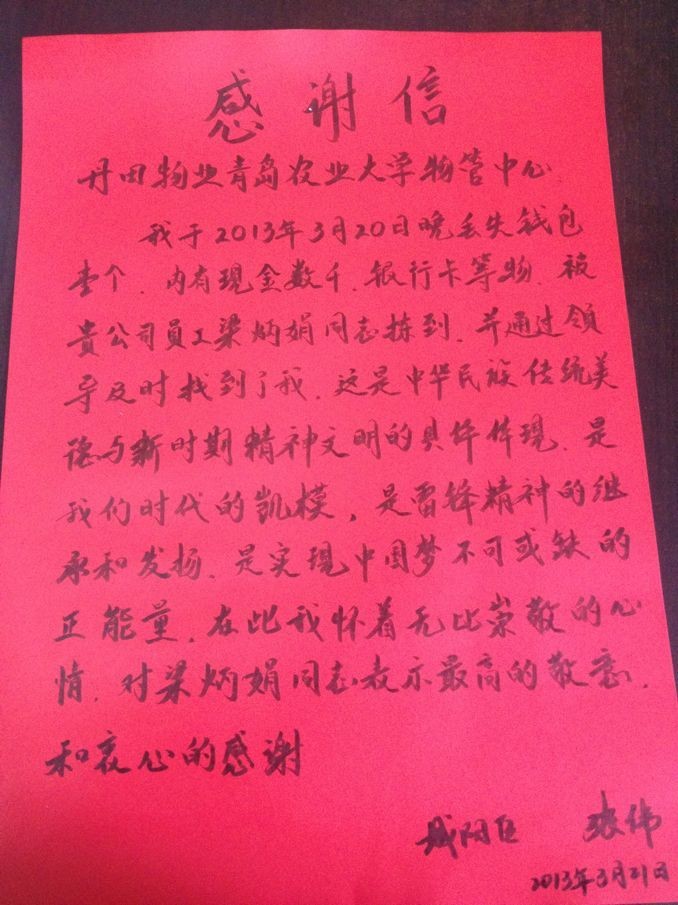 感谢信
丹田物业青岛农业大学物管中心.
我于2013年3月20日晚丢失钱包
壹个.内有现金数千.银行卡等物.被
贵公司员工梁炳娟同志拣到.并通过领
导及时找到了我.这是中华民族传统美
德与新时期精神文明的具体体现.是
我们时代的凯模,是雷锋精神的继
承和发扬.是实现中国梦不可或缺的
正能量.在此我怀着无比崇敬的心
情.对梁炳娟同志表示最高的敬意.
和衷心的感谢
城阳区 张伟
2013年3月21日